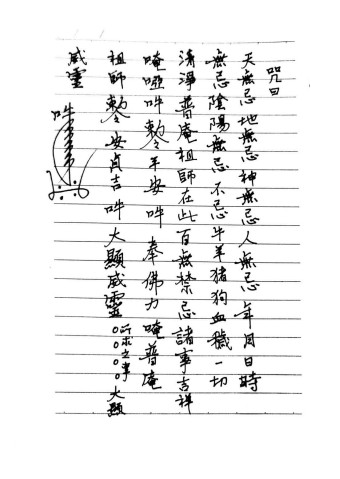 咒曰
天無忌地無忌神無忌人無忌年月日時
無忌陰陽無忌不忌牛羊猪狗血穢一切
清淨普庵祖師在此百無禁忌諸事吉祥
唵啞吽勅令平安吽奉佛力唵普庵
祖師勅令安貞吉吽大顯威靈所求之事大顯
威靈
吽